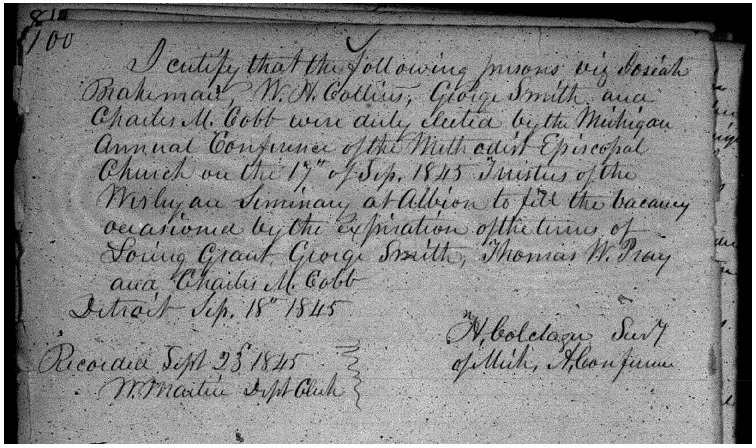 100
I certify that the following persons viz Josiah
Brakeman, W. H. Collins, George Smith and
Charles M. Cobb were duly elected by the Michigan
Annual Conference of the Methodist Episcopal
Church on the 17" of Sep. 1845 Trustees of the
Wesleyan Seminary at Albion to fill the vacancy
occasioned by the expiration of the terms of
Loring Grant George Smith, Thomas W. Pray
and Charles M. Cobb
Detroit Sep. 18" 1845
Secry
of Mich, A, Conference
Recorded Sept 23 1845
W. Martin Dept Clerk